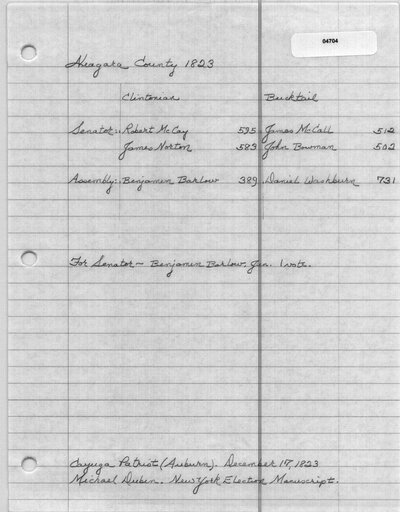 04704
Niagara County 1823
Clintonian Bucktail
Senator: Robert McCay 595 James McCall 512
James Norton 583 John Bowman 502
Assembly: Benjamin Barlow 389 Daniel Washburn 731
For Senator ~ Benjamin Barlow, Jun. 1 vote.
Cayuga Patriot (Auburn). December 17, 1823
Michael Duben. New York Election Manuscript.